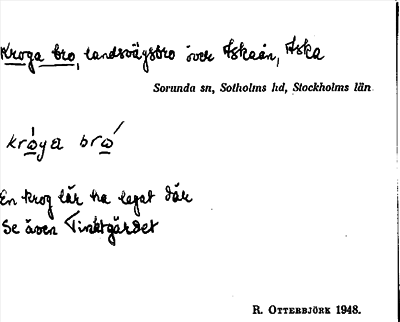 Kroga bro, landsvägsbro över Åskaån, Åska
Sorunda sn, Sotholms hd, Stockholms län
En krog lär ha legat där
Se även Tinätgärdet
R. Otterbjörk 1948.